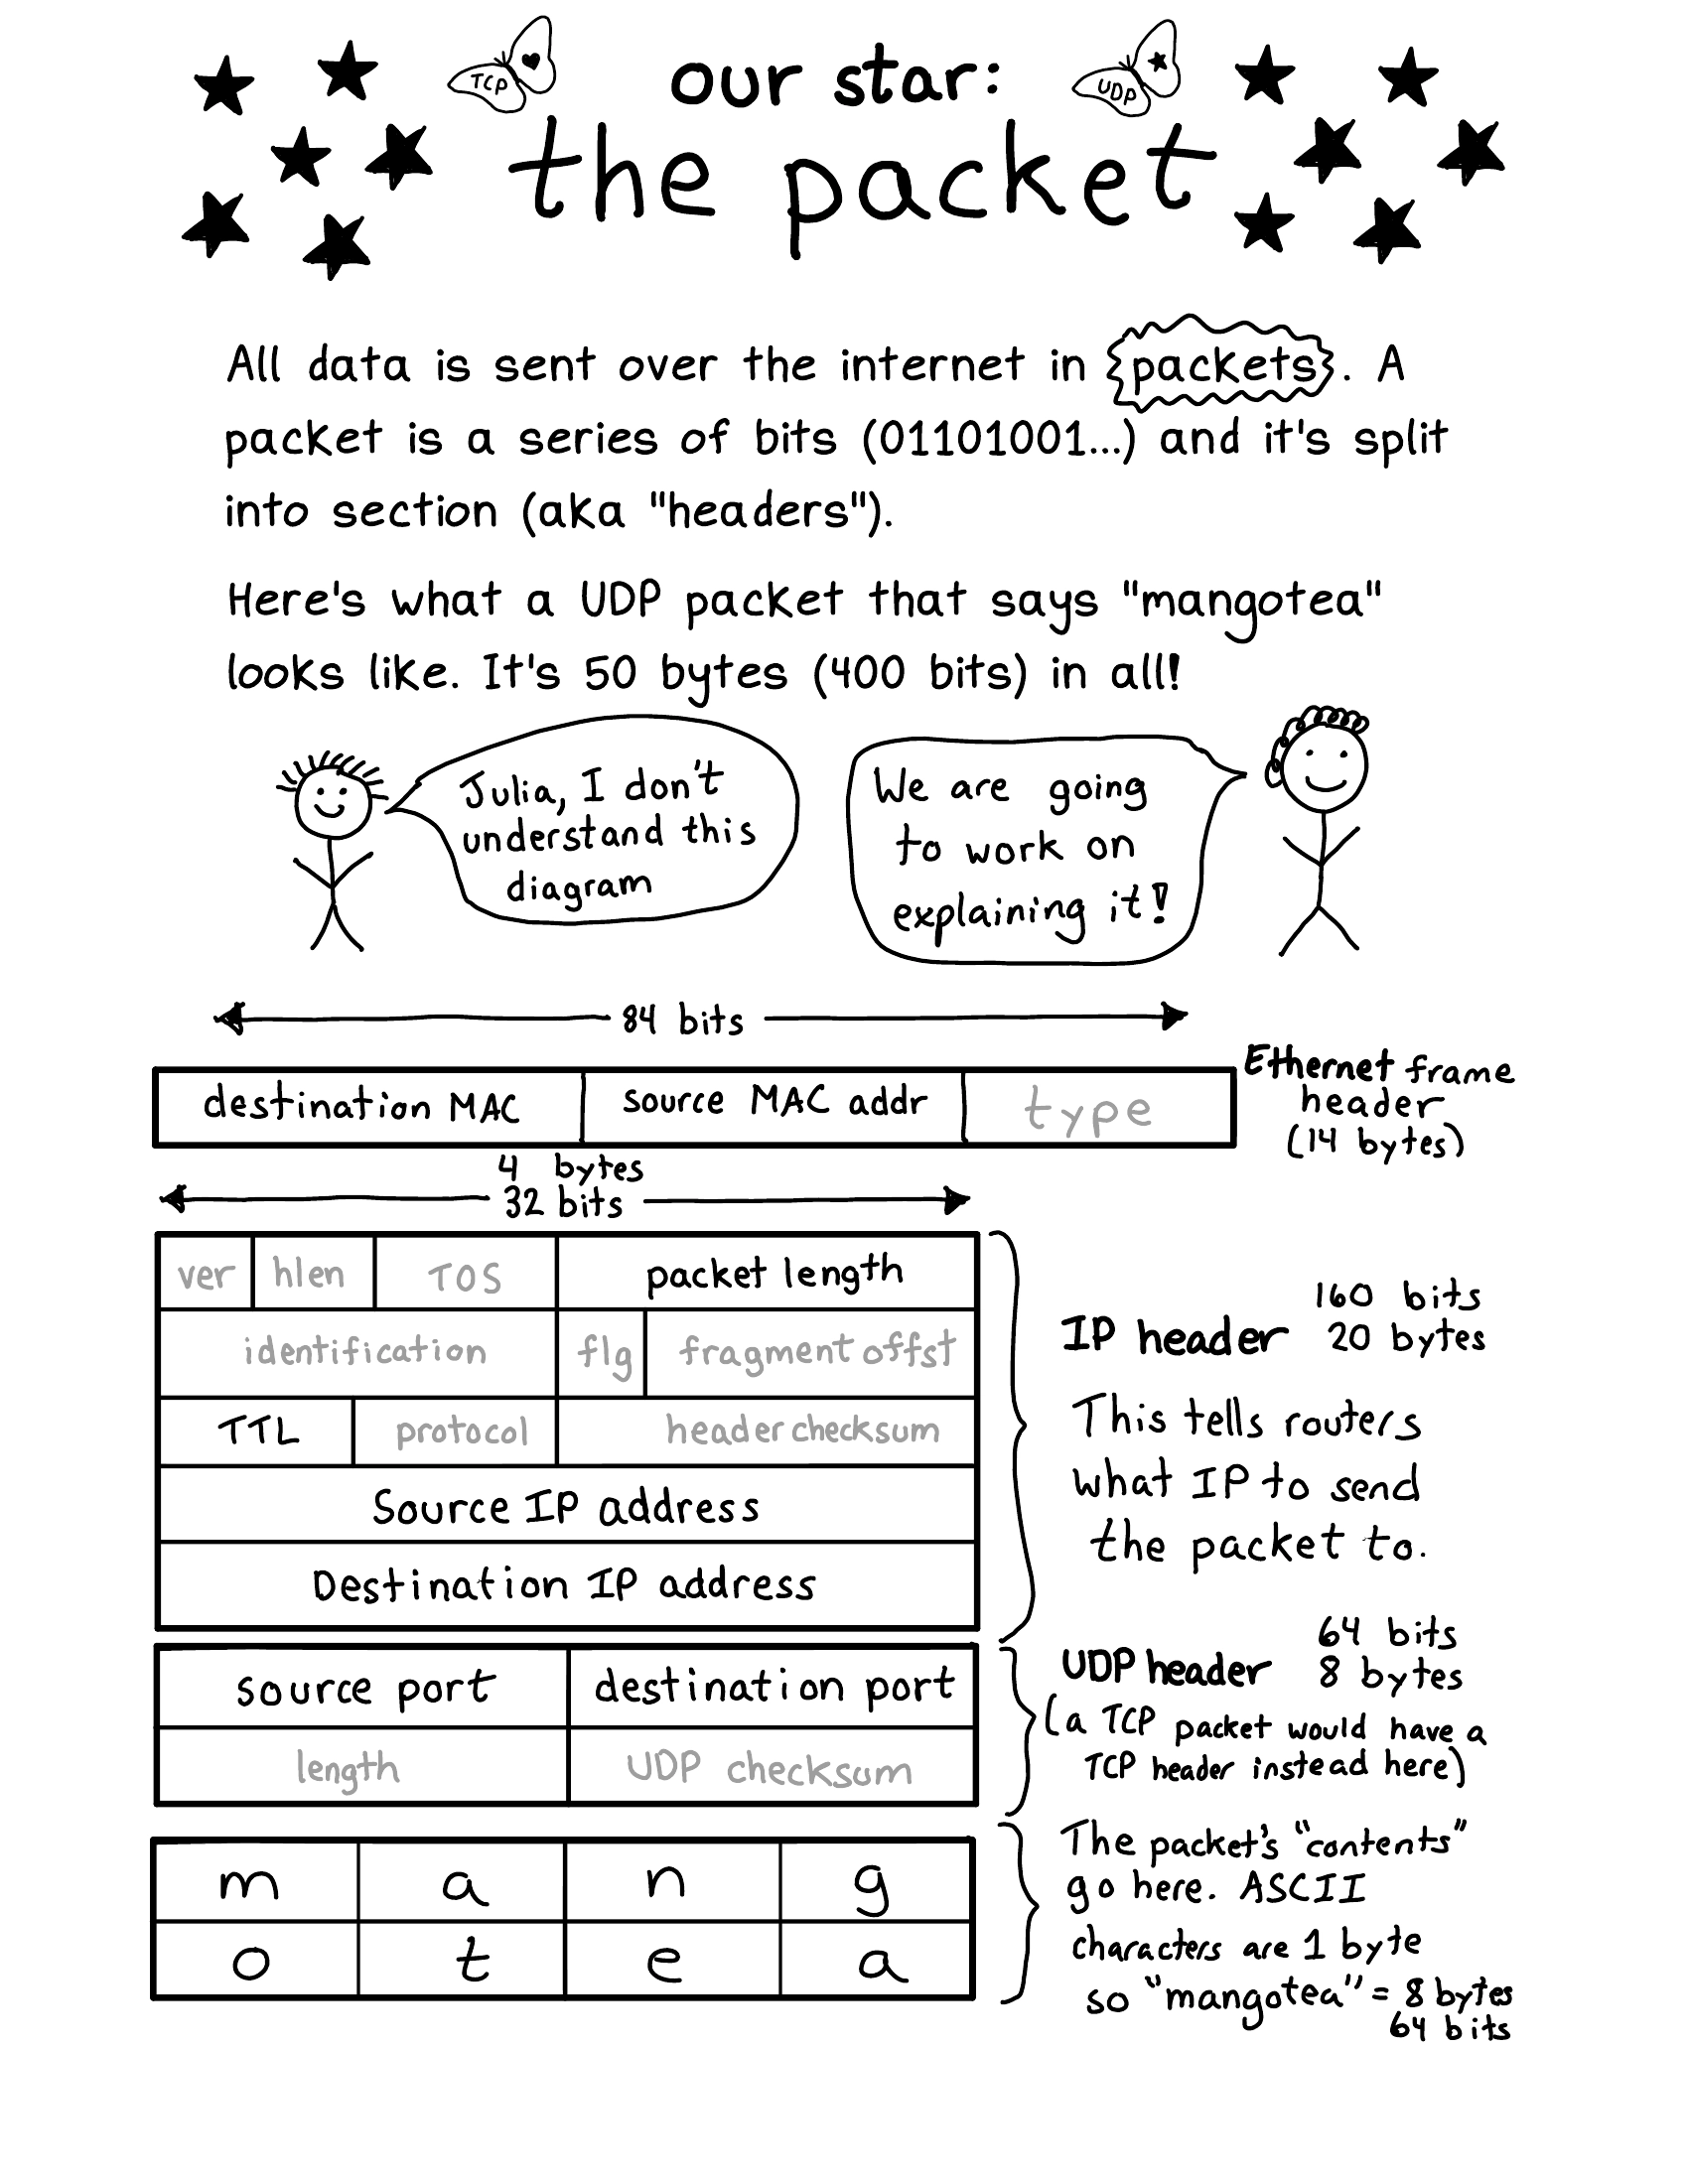 TCP
our star:
UDP
the packet
All data is sent over the internet in packets. A
packet is a series of bits (01101001...) and it's split
into section (aka "headers").
Here's what a UDP packet that says "mangotea"
looks like. It's 50 bytes (400 bits) in all!
Julia, I don't
understand this
diagram
We are going
to work on
explaining it!
84 bits
destination MAC
source MAC addr
type
Ethernet frame
header
(14 bytes)
4 bytes
32 bits
ver
hlen
TOS
packet length
identification
flg
fragment offst
TTL
protocol
header checksum
Source IP address
Destination IP address
160 bits
IP header 20 bytes
This tells routers
what IP to send
the packet to.
source port
destination port
length
UDP checksum
64 bits
UDP header 8 bytes
(a TCP packet would have a
TCP header instead here)
m a n g
o t e a
The packet's "contents"
go here. ASCII
characters are 1 byte
so "mangotea" = 8 bytes
64 bits